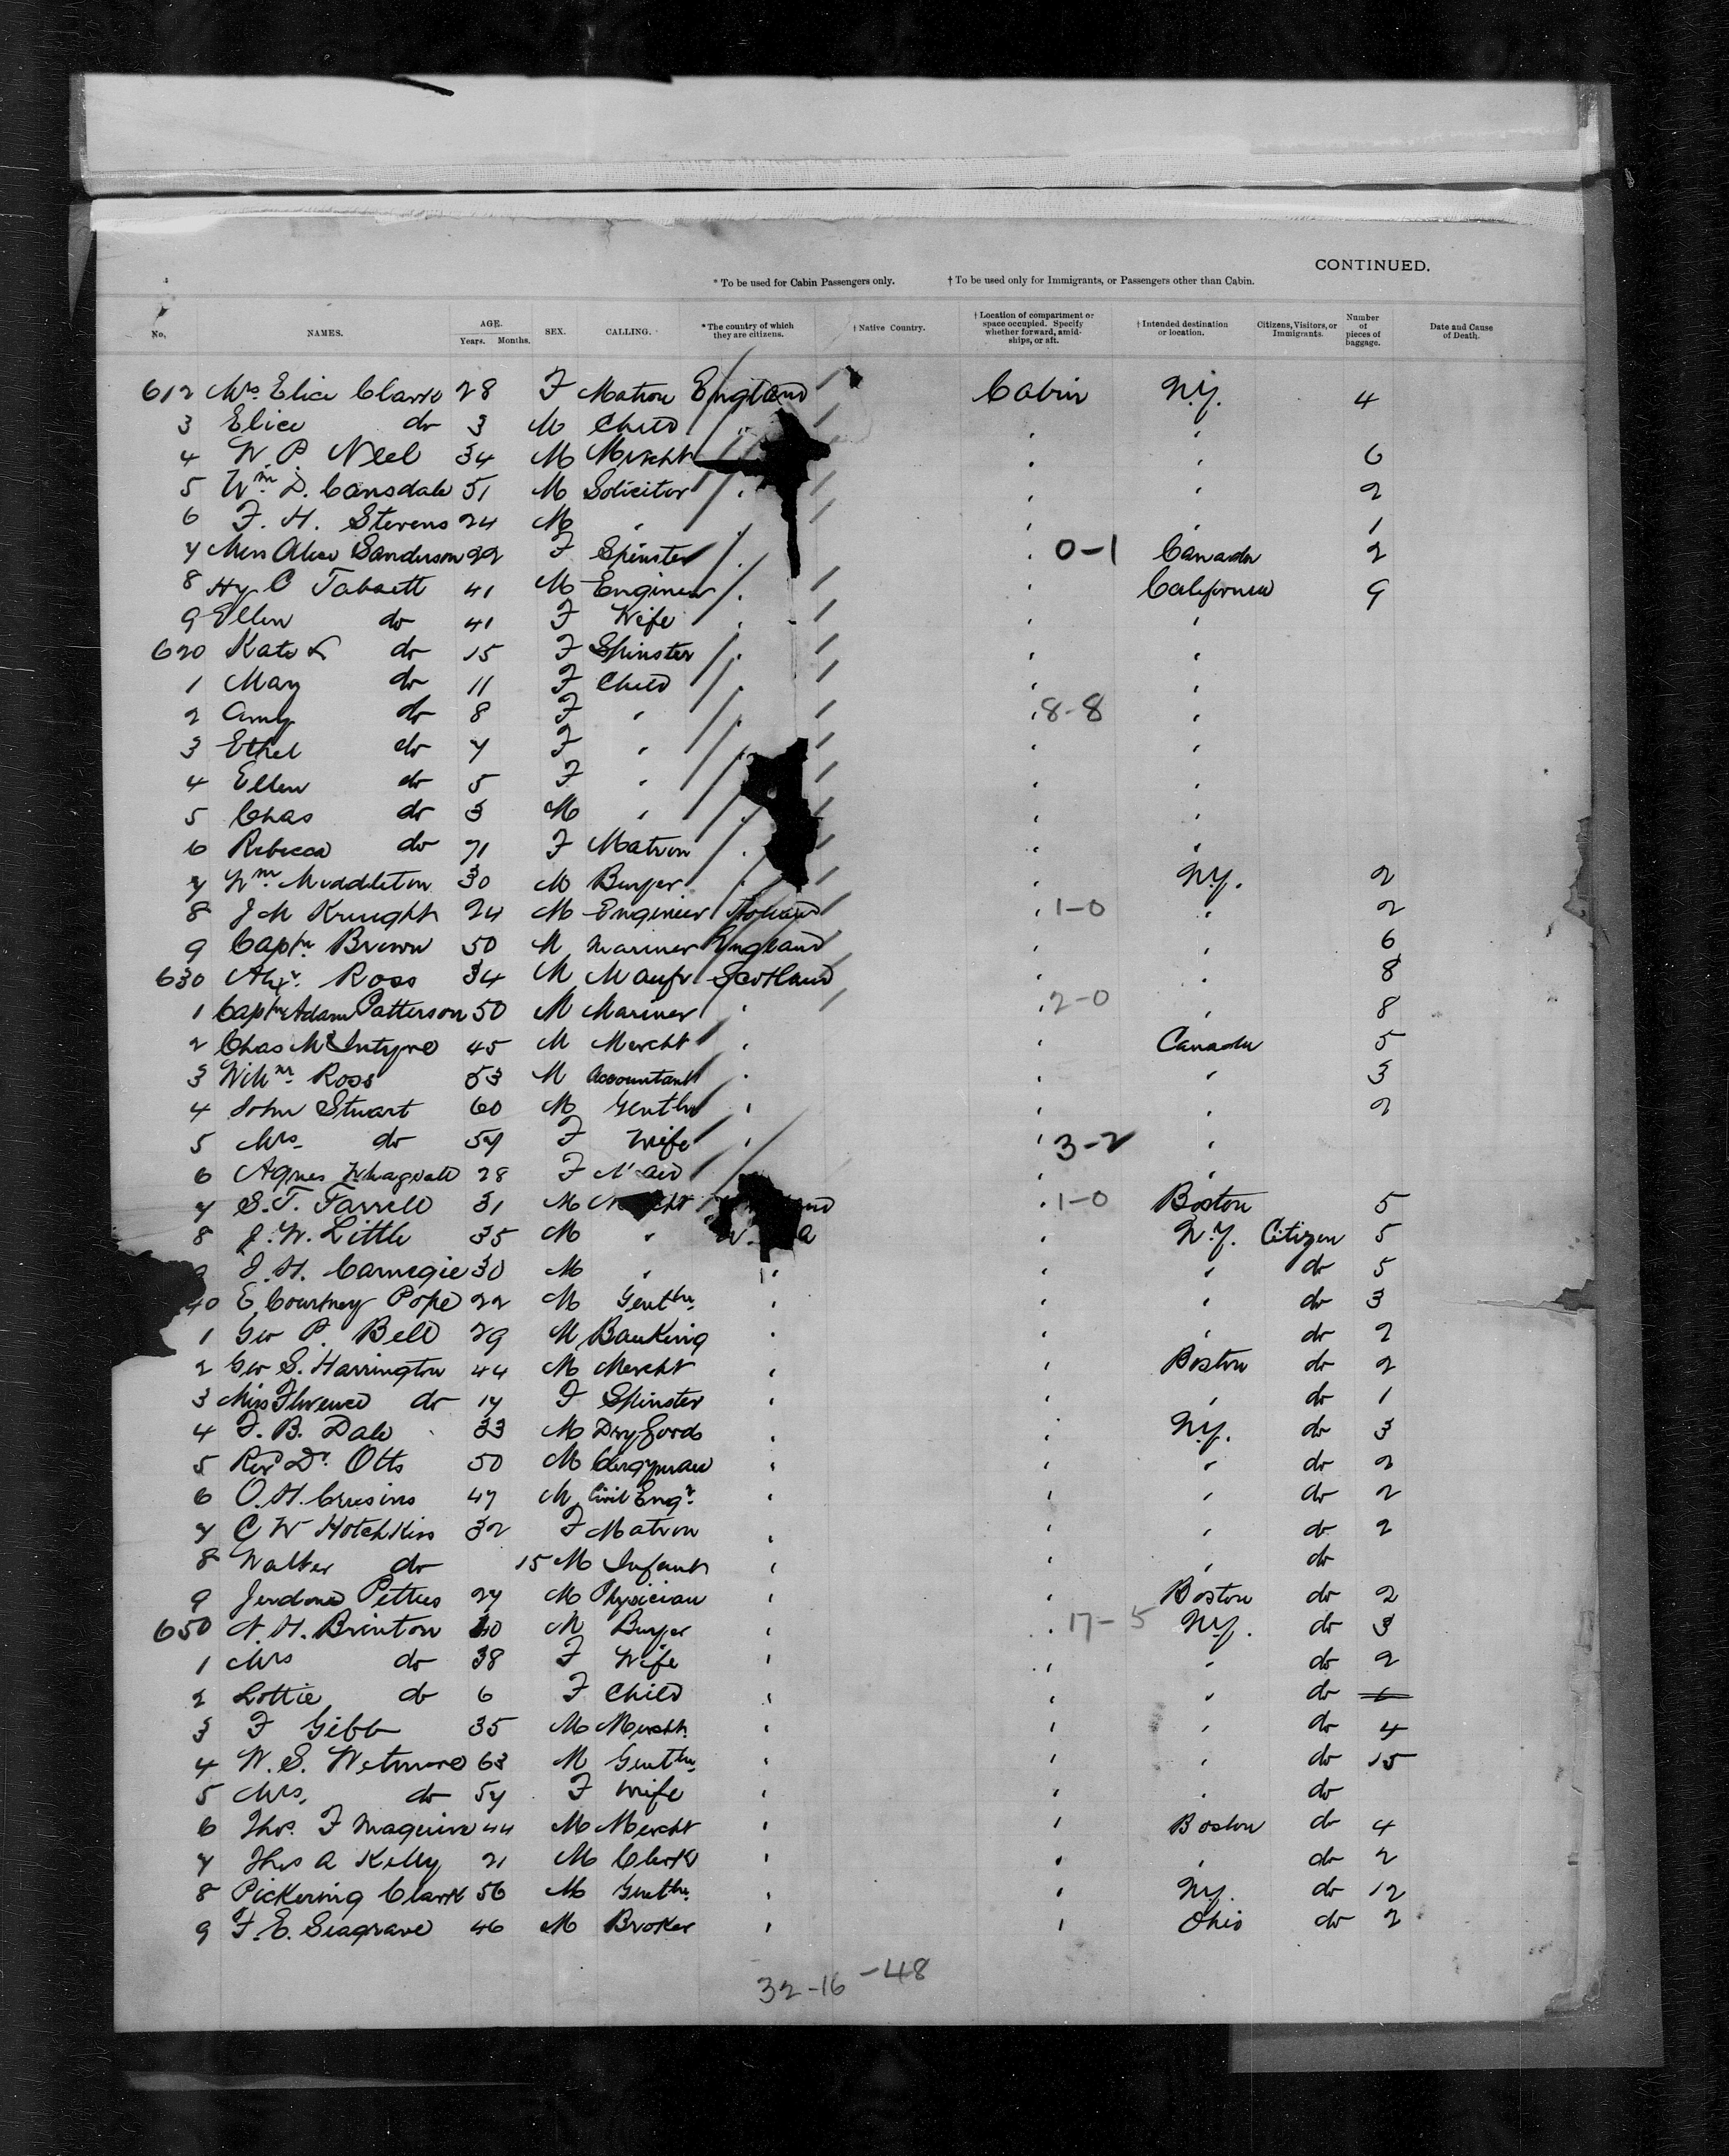 CONTINUED.
* To be used for Cabin Passengers only. † To be used only for Immigrants, or Passengers other than Cabin.
No. NAMES. AGE. Years. Months. SEX. CALLING. * The country of which they are citizens. † Native Country. † Location of compartment or space occupied. Specify whether forward, amidships, or aft. † Intended destination or location. Citizens, Visitors, or Immigrants. Number of pieces of baggage. Date and Cause of Death.
612 Mrs Elice Clark 28 F Matron England Cabin N.Y. 4
3 Elice do 3 M Child " "
4 W. P. Neel 34 M Mercht " " 6
5 Wm D. Cansdale 51 M Solicitor " " " 2
6 F. H. Stevens 24 M " " " " 1
7 Miss Alice Sanderson 22 F Spinster " " 0-1 Canada 2
8 Hy C Tabsett 41 M Engineer " " California 9
9 Ellen do 41 F Wife " " "
620 Kate L do 15 F Spinster " " "
1 May do 11 F Child " " "
2 Amy do 8 F " " " 8-8 "
3 Ethel do 7 F " " " "
4 Ellen do 5 F " " "
5 Chas do 3 M " " "
6 Rebecca do 71 F Matron " " "
7 Wm Middleton 30 M Buyer " " N.Y. 2
8 J M Knught 24 M Engineer Holland " 1-0 " 2
9 Captn Brown 50 M Mariner England " " 6
630 Alexr Ross 34 M Manfr Scotland " " 8
1 Captn Adam Patterson 50 M Mariner " " 2-0 " 8
2 Chas McIntyre 45 M Mercht " " Canada 5
3 Willm Ross 53 M Accountant " " " 3
4 John Stuart 60 M Gentln " " " 2
5 Mrs do 57 F Wife " " 3-2 "
6 Agnes 28 F Maid " "
7 S. T. Farrell 31 M " 1-0 Boston 5
8 J. W. Little 35 M " " N.Y. Citizen 5
J. H. Carnegie 30 M " " " " do 5
40 E. Courtney Pope 22 M Gentln " " " do 3
1 Geo P. Bell 29 M Banking " " " do 2
2 Geo S. Harrington 44 M Mercht " " Boston do 2
3 Miss Florence do 17 F Spinster " " " do 1
4 F. B. Dale 33 M Dry Goods " " N.Y. do 3
5 Revd Dr Otts 50 M Clergyman " " " do 2
6 O. H. Crusins 47 M Civil Engr " " " do 2
7 C W Hotchkiss 32 F Matron " " " do 2
8 Walter do 15 M Infant " " " do
9 Jerdone Pettus 27 M Physician " " Boston do 2
650 N. H. Brinton 40 M Buyer " " 17-5 N.Y. do 3
1 Mrs do 38 F Wife " " " do 2
2 Lottie do 6 F Child " " " do
3 F Gibb 35 M Mercht " " " do 4
4 W. S. Wetmore 63 M Gentln " " " do 15
5 Mrs. do 57 F Wife " " " do
6 Thos. F Maguire 44 M Mercht " " Boston do 4
7 Thos A Kelly 21 M Clerk " " " do 2
8 Pickering Clark 56 M Gentln " " N.Y. do 12
9 F. E. Seagrave 46 M Broker " " Ohio do 2
32-16-48